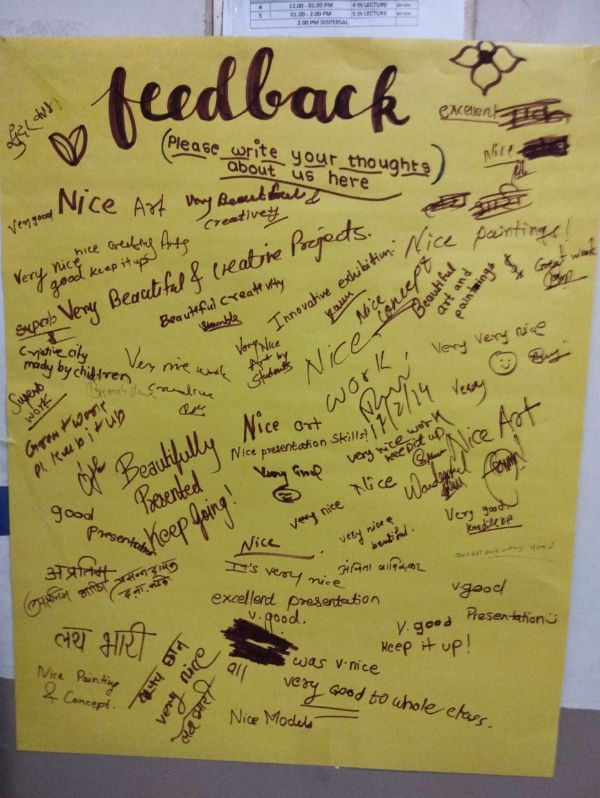 4 12.00 - 01.00 PM 4 th LECTURE
5 01.00 - 2.00 PM 5 th LECTURE
2.00 PM DISPERSAL
feedback
(Please write your thoughts
about us here)
excellent
Nice
Very good
Nice Art
Very Beautiful &
creativity
Very nice
nice Creating Arts
good keep it ups
Very Beautiful & Creative Projects.
Innovative exhibition:
Nice paintings!
Superb
Beautiful Creativity
Nice
concept
Beautiful
art and
paintings
Great work
Creative city
mady by children
Very nice work
Very Nice
Art by
Students
Nice
work!
17/2/24
Very very nice
Superb
work
Great work
Pl. Keep it up
Nice art
Nice presentation skills!
Very Good
very nice work
keep it up
Very
Nice Art
Beautifully
Presented.
Keep Going!
Nice
Wonderful
good
Presentation
very nice
Very good
Nice
It's very nice
very nice
beautiful.
excellent very good
अप्रतिम
excellent presentation
v.good.
v.good
Presentation
v. good
Keep it up!
लय भारी
Nice Painting
& Concept.
खूपच छान
very nice
लय भारी
all was v.nice
very Good to whole class.
Nice Models